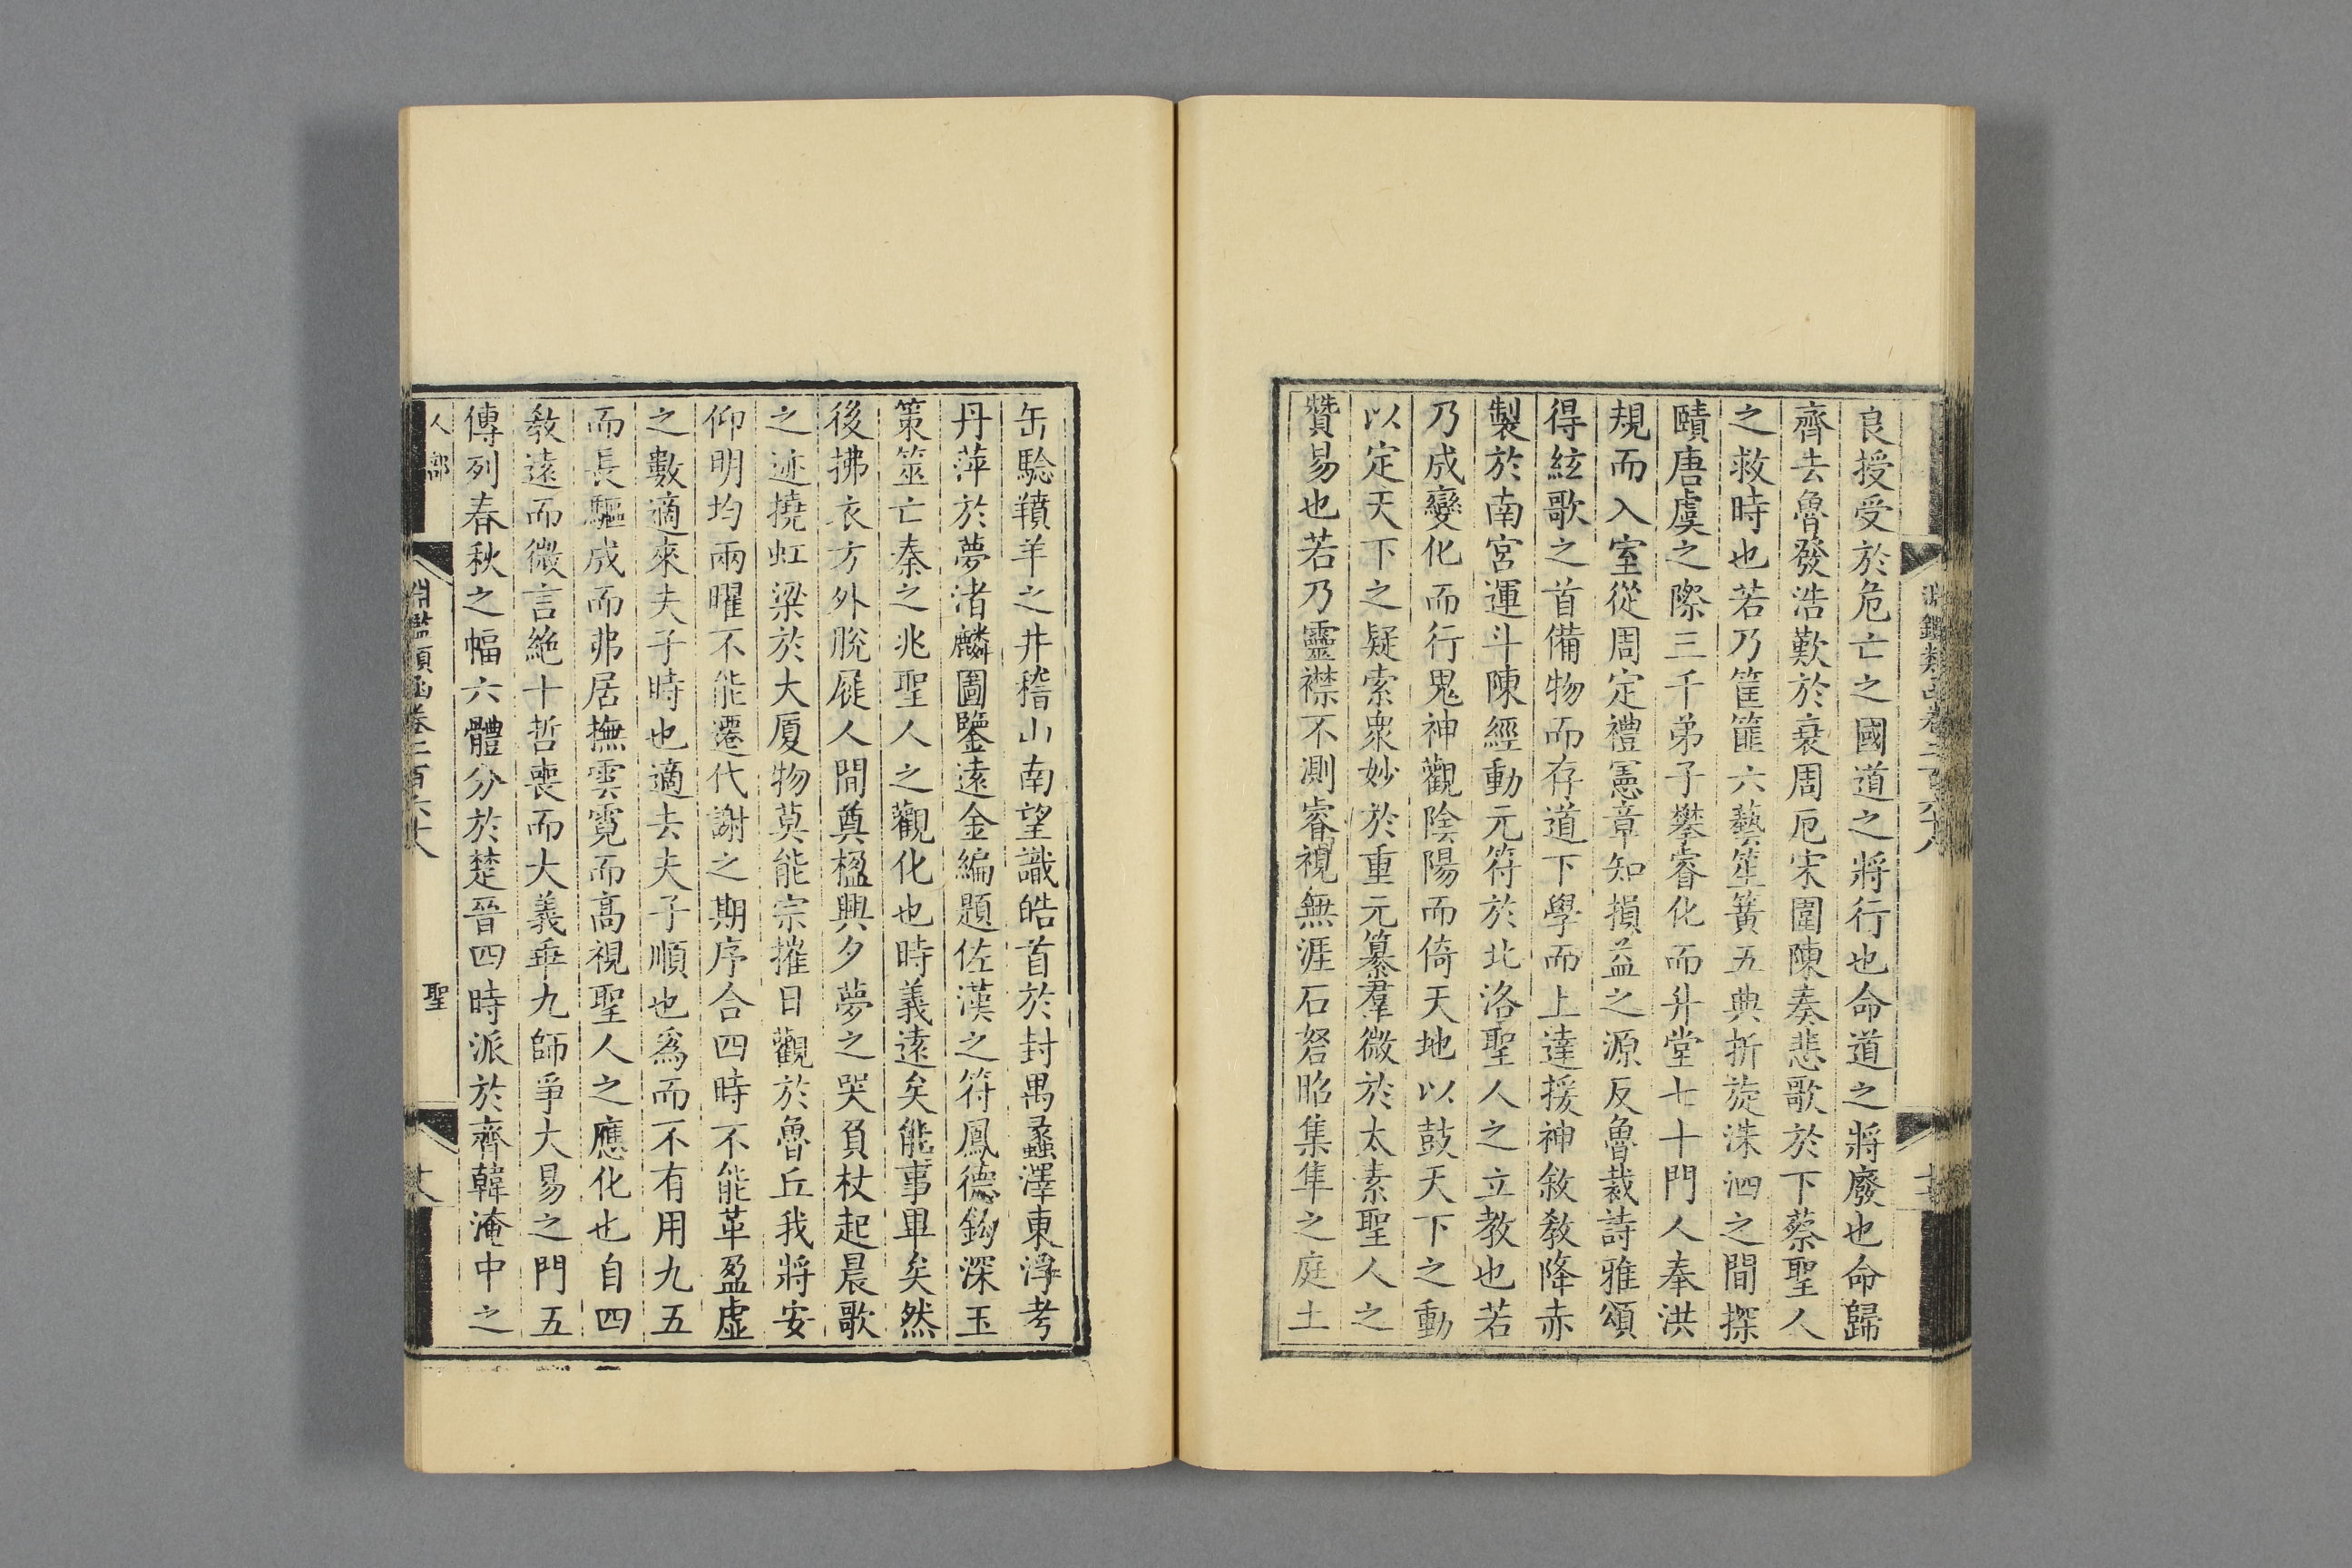 良授受於危亡之國道之將行也命道之將廢也命歸
齊去魯發浩歎於衰周厄宋圍陳奏悲歌於下蔡聖人
之救時也若乃筐篚六藝笙簧五典折旋洙泗之間探
賾唐虞之際三千弟子攀睿化而升堂七十門人奉洪
規而入室從周定禮憲章知損益之源反魯裁詩雅頌
得絃歌之首備物而存道下學而上達援神敘敎降赤
製於南宮運斗陳經動元符於北洛聖人之立教也若
乃成變化而行鬼神觀陰陽而倚天地以鼓天下之動
以定天下之疑索衆妙於重元纂羣微於太素聖人之
贊易也若乃靈襟不測睿視無涯石砮昭集隼之庭土
缶驗羵羊之井稽山南望識皓首於封禺蠡澤東浮考
丹萍於夢渚麟圖鑒遠金編題佐漢之符鳳德鉤深玉
策筮亡秦之兆聖人之觀化也時義遠矣能事畢矣然
後拂衣方外脫屣人間奠楹興夕夢之哭負杖起晨歌
之迹撓虹梁於大厦物莫能宗摧日觀於魯丘我將安
仰明均兩曜不能遷代謝之期序合四時不能革盈虛
之數適來夫子時也適去夫子順也爲而不有用九五
而長驅成而弗居撫雲霓而高視聖人之應化也自四
敎遠而微言絕十哲喪而大義乖九師爭大易之門五
傳列春秋之幅六體分於楚晉四時派於齊韓淹中之
人部
淵鑑類函卷二百六十八
聖